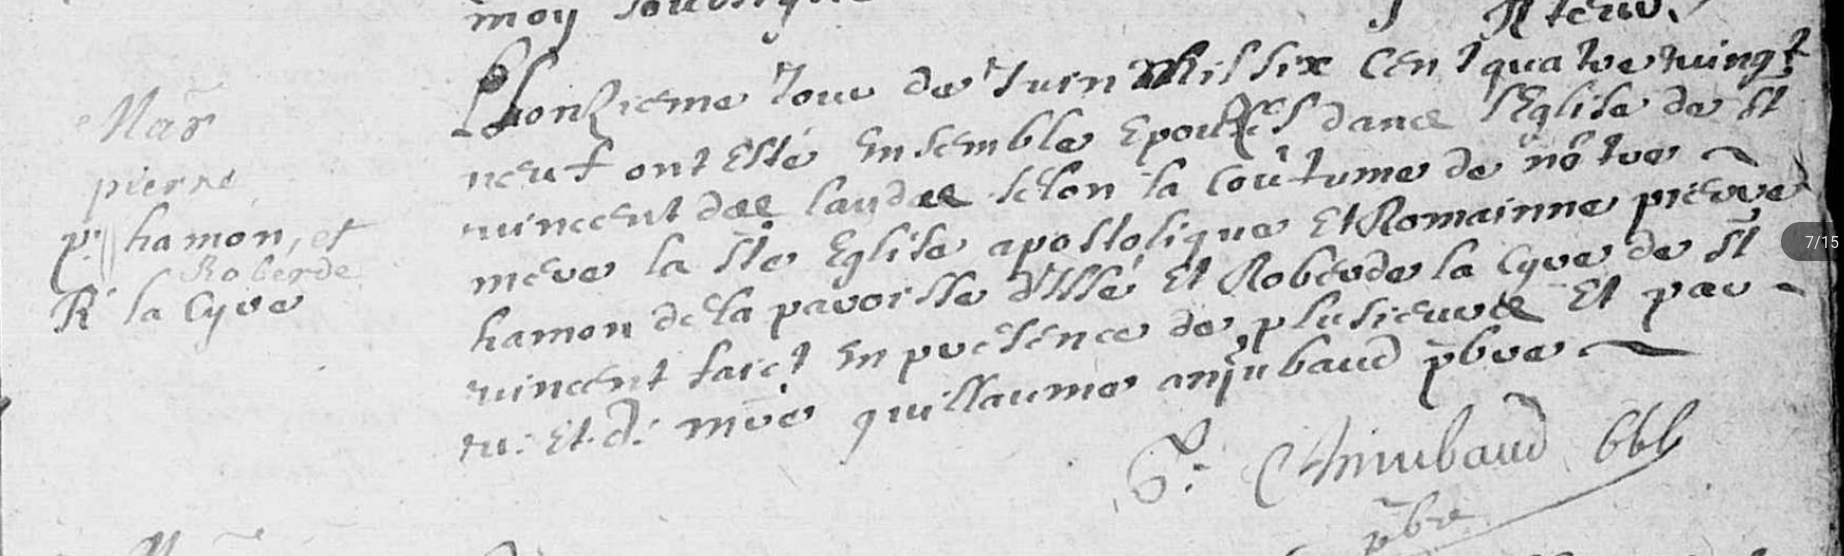 moy
Mar̃
pierre
p. hamon, et
Roberde
R la Cyre
L'honziéme Jour de Juin Mil six Cent quatre vingt
neuf ont esté ensemble epousés dans l'Eglise de st
vincent des landes selon la Coûtume de nõtre
mere la ste Eglise apostolique Et Romainne pierre
hamon de la paroisse d'Issé Et Roberde la Cyre de st
vincent faict en presence de plusieurs Et par
v: Et d: mre guillaume anjubaud pbre
G: Anjubaud
pbre
7/15